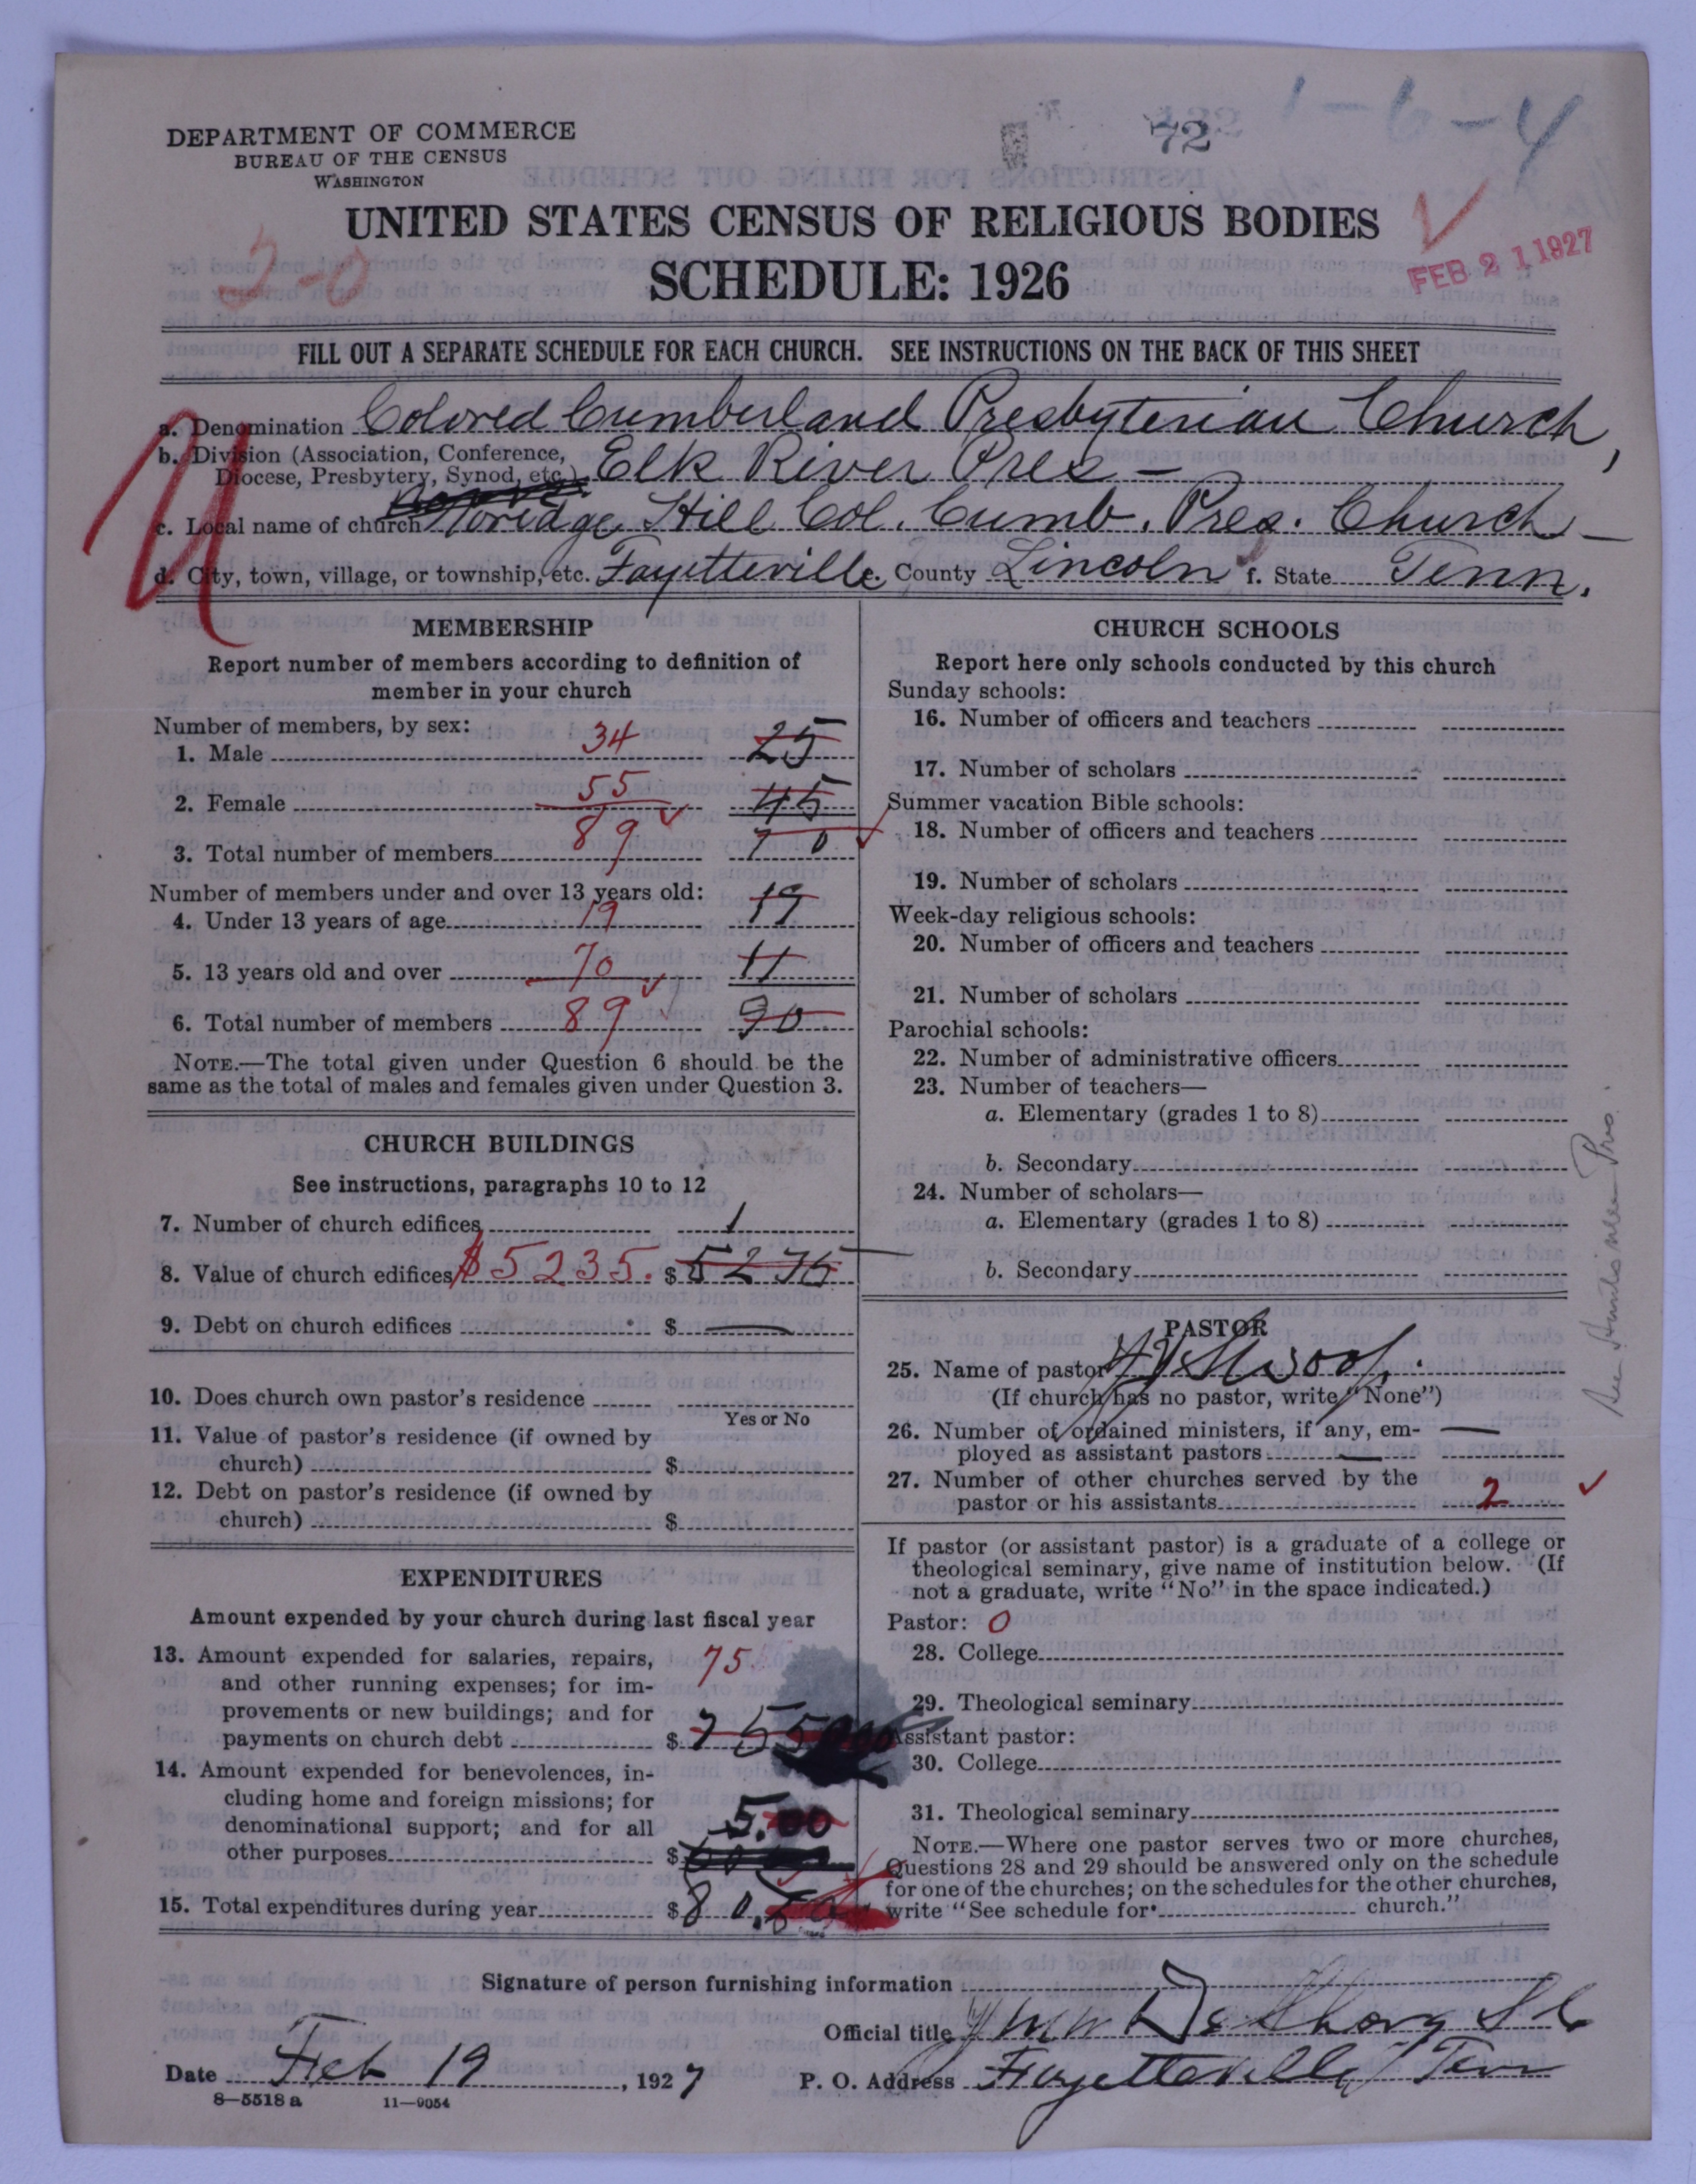 1-6-4
72
DEPARTMENT OF COMMERCE
BUREAU OF THE CENSUS
WASHINGTON
UNITED STATES CENSUS OF RELIGIOUS BODIES
FEB 21 1927
SCHEDULE: 1926
FILL OUT A SEPARATE SCHEDULE FOR EACH CHURCH. SEE INSTRUCTIONS ON THE BACK OF THIS SHEET
a. Denomination Colored Cumberland Presbyterian Church,
b. Division (Association, Conference,
Diocese, Presbytery, Synod, etc.) Elk River Pres-
c. Local name of church Hill Col. Cumb. Pres. Church-
d. City, town, village, or township, etc. Fayetteville e. County Lincoln f. State Tenn.
MEMBERSHIP
Report number of members according to definition of
member in your church
Number of members, by sex:
1. Male 34 25
2. Female 55 45
3. Total number of members 89 70
Number of members under and over 13 years old:
4. Under 13 years of age 19 19
5. 13 years old and over 70 11
6. Total number of members 89 90
NOTE.—The total given under Question 6 should be the
same as the total of males and females given under Question 3.
CHURCH BUILDINGS
See instructions, paragraphs 10 to 12
7. Number of church edifices 1
8. Value of church edifices $5235. $5235
9. Debt on church edifices $ —
10. Does church own pastor's residence
Yes or No
11. Value of pastor's residence (if owned by
church) $
12. Debt on pastor's residence (if owned by
church) $
EXPENDITURES
Amount expended by your church during last fiscal year
13. Amount expended for salaries, repairs, 75
and other running expenses; for im-
provements or new buildings; and for
payments on church debt $
14. Amount expended for benevolences, in-
cluding home and foreign missions; for
denominational support; and for all 5.00
other purposes $
15. Total expenditures during year $80.
CHURCH SCHOOLS
Report here only schools conducted by this church
Sunday schools:
16. Number of officers and teachers
17. Number of scholars
Summer vacation Bible schools:
18. Number of officers and teachers
19. Number of scholars
Week-day religious schools:
20. Number of officers and teachers
21. Number of scholars
Parochial schools:
22. Number of administrative officers
23. Number of teachers—
a. Elementary (grades 1 to 8)
b. Secondary
24. Number of scholars—
a. Elementary (grades 1 to 8)
b. Secondary
PASTOR
25. Name of pastor
(If church has no pastor, write "None")
26. Number of ordained ministers, if any, em-
ployed as assistant pastors —
27. Number of other churches served by the
pastor or his assistants 2
If pastor (or assistant pastor) is a graduate of a college or
theological seminary, give name of institution below. (If
not a graduate, write "No" in the space indicated.)
Pastor: 0
28. College
29. Theological seminary
Assistant pastor:
30. College
31. Theological seminary
NOTE.—Where one pastor serves two or more churches,
Questions 28 and 29 should be answered only on the schedule
for one of the churches; on the schedules for the other churches,
write "See schedule for church."
Signature of person furnishing information
Official title
Date Feb 19, 1927 P. O. Address Fayetteville Tenn
8—5518 a 11—9054